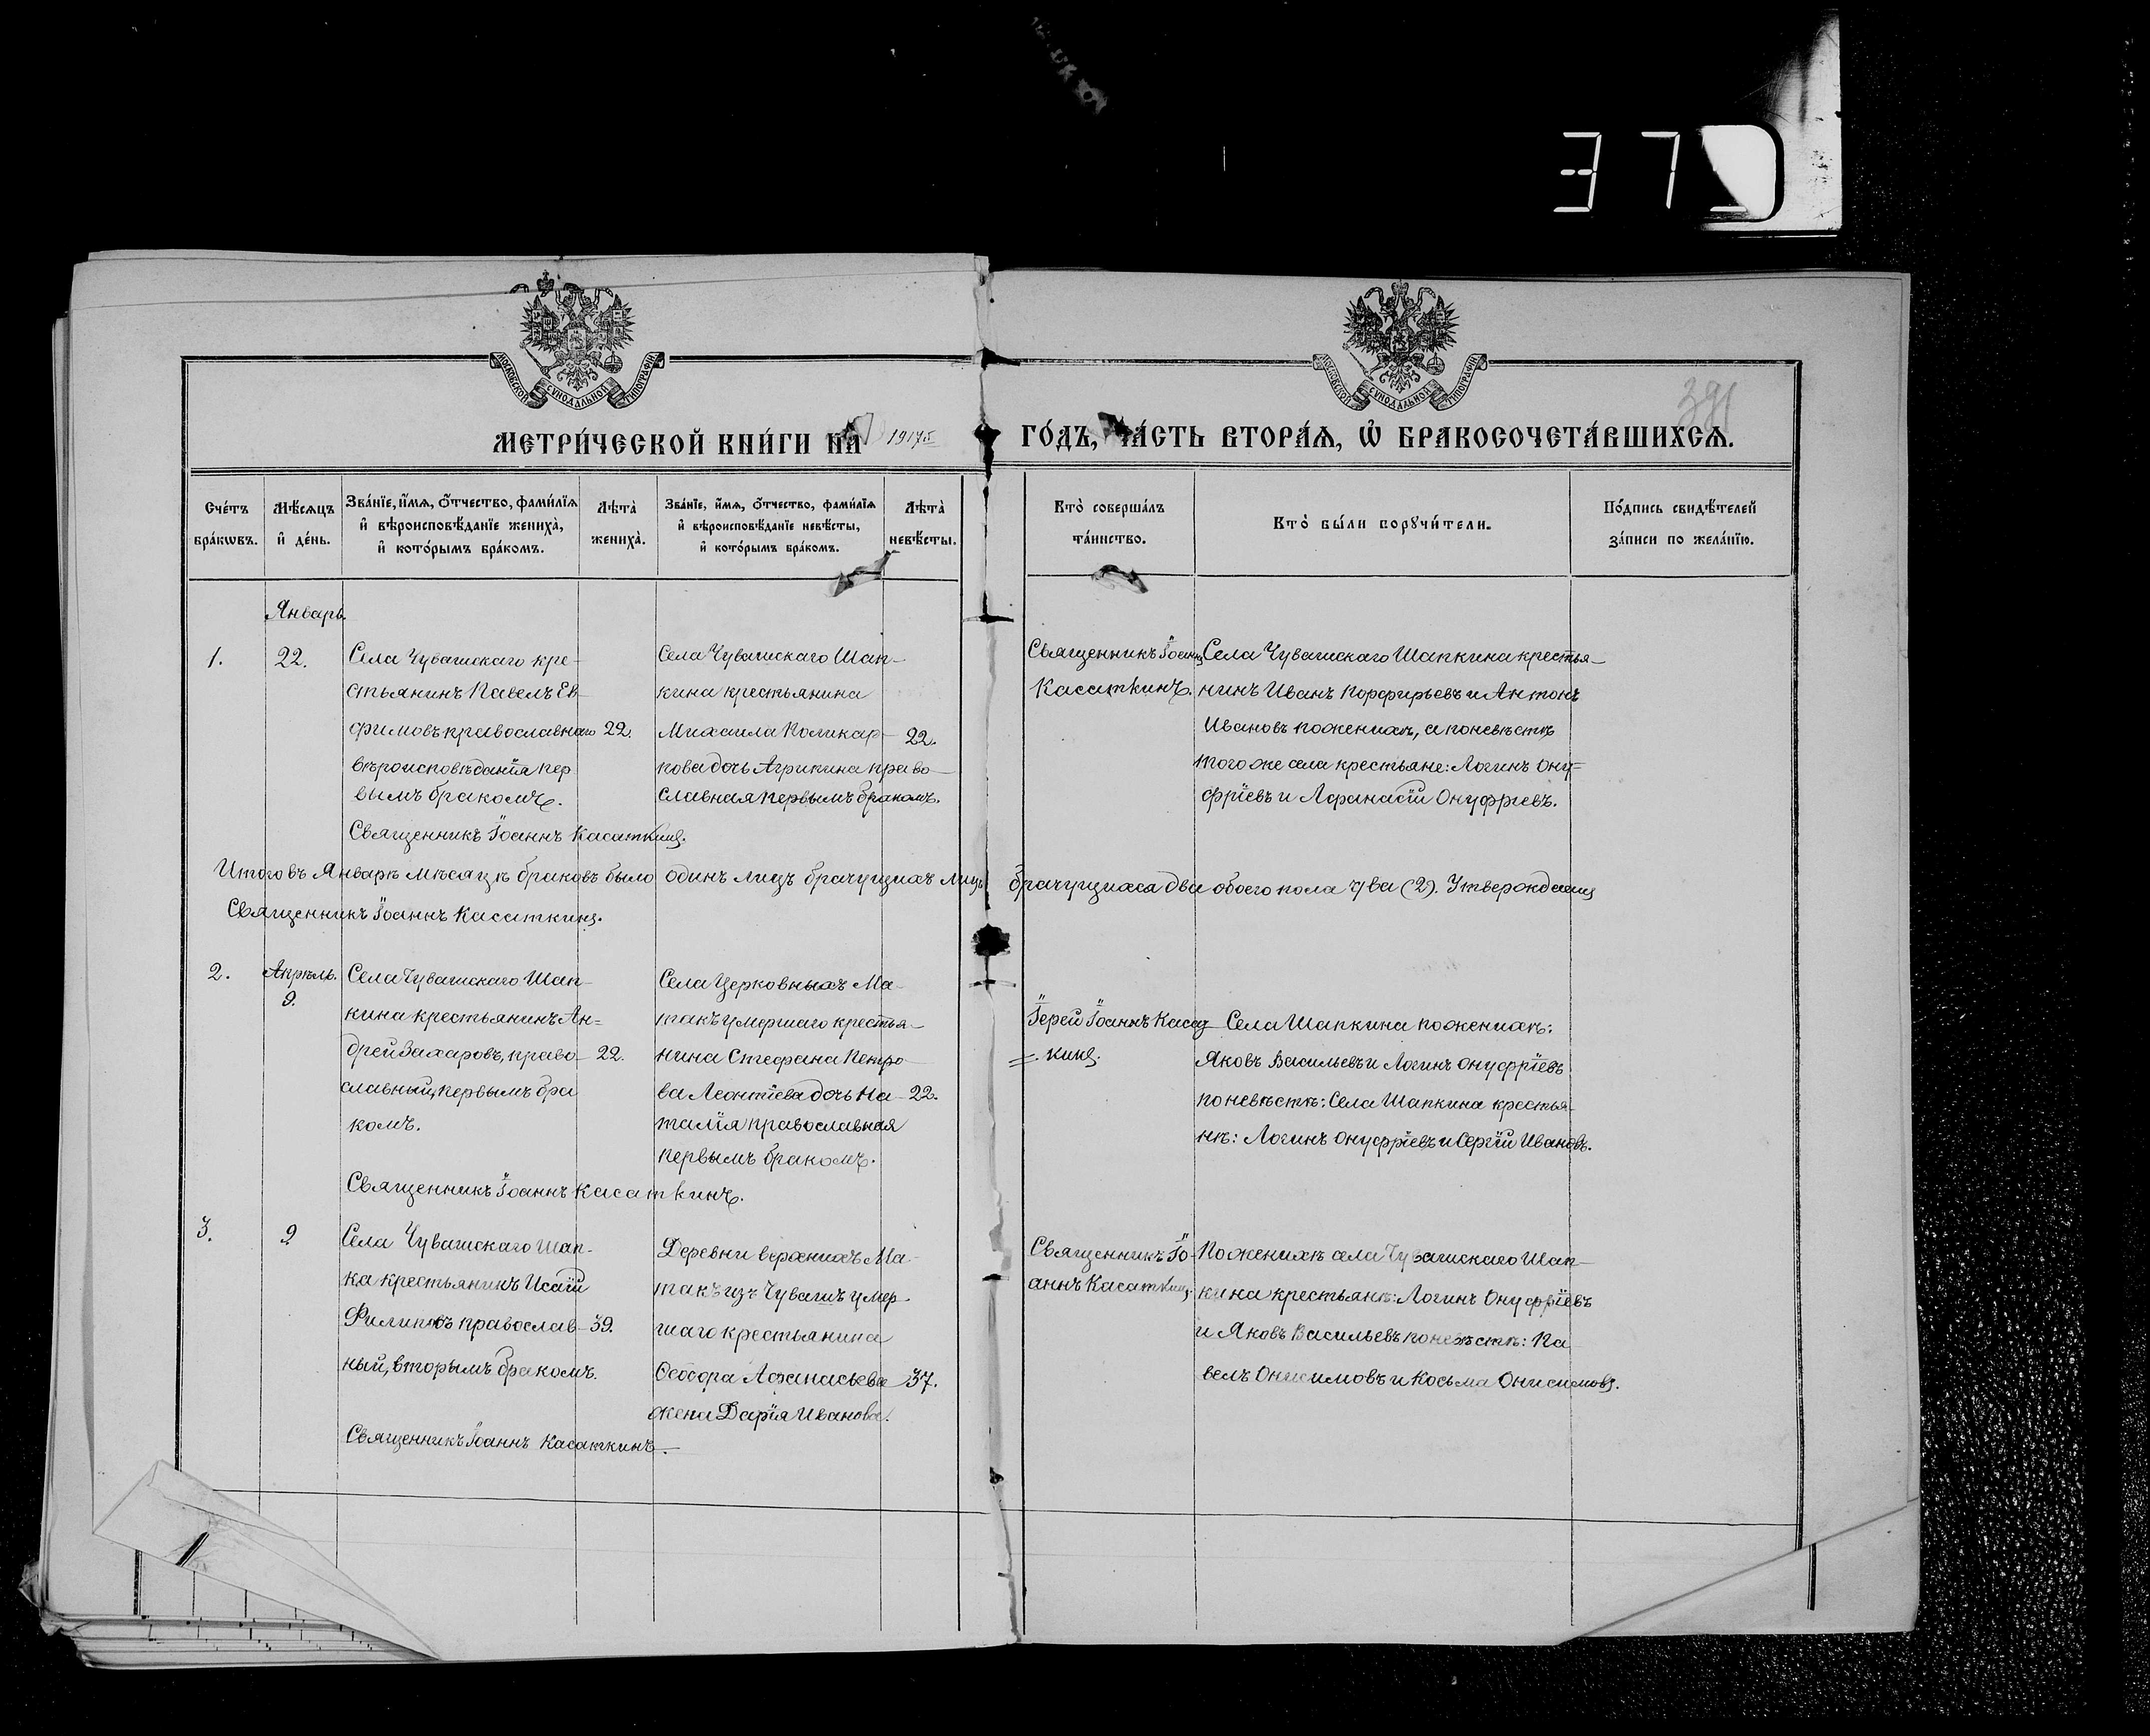 МОСКОВСКОЙ СѴНОДАЛЬНОЙ ТИПОГРАФІИ
МОСКОВСКОЙ СѴНОДАЛЬНОЙ ТИПОГРАФІИ
391
МЕТРИ́ЧЕСКОЙ КНИ́ГИ НА 1917й ГО́ДЪ, ЧА́СТЬ ВТОРА́Ѧ, Ѡ҆ БРАКОСОЧЕТА́ВШИХСѦ.
Сче́тъ бра́кѡвъ.
Мѣ́сѧцъ и҆ де́нь.
Зва́нїе, и҆́мѧ, ѻ҆́тчество, фами́лїѧ
и҆ вѣроисповѣ́данїе жениха̀,
и҆ кото́рымъ бра́комъ.
Лѣта̀ жениха̀.
Зва́нїе, и҆́мѧ, ѻ҆́тчество, фами́лїѧ
и҆ вѣроисповѣ́данїе невѣ́сты,
и҆ кото́рымъ бра́комъ.
Лѣта̀ невѣ́сты.
Кто̀ соверша́лъ та́инство.
Кто̀ бы́ли порꙋчи́тели.
По́дпись свидѣ́телей за́писи по жела́нїю.
Январь.
1.
22.
Села Чувашскаго кре-
стьянинъ Павелъ Ев-
фимовъ православнаго
вѣроисповѣданія пер
вымъ бракомъ.
22.
Села Чувашскаго Шап-
кина крестьянина
Михаила Поликар-
пова дочь Агрипина право-
славная первымъ бракомъ.
22.
Священникъ Іоаннъ
Касаткинъ.
Села Чувашскаго Шапкина крестья-
нинъ Иванъ Порфирьевъ и Антонъ
Ивановъ по женихѣ, а по невѣстѣ
того же села крестьяне: Логинъ Ону-
фріевъ и Афанасій Онуфріевъ.
Священникъ Іоаннъ Касаткинъ.
Итого въ Январѣ мѣсяцѣ браковъ было одинъ лицъ брачущихъ лицъ брачущихся два обоего пола два (2). Утверждаетъ
Священникъ Іоаннъ Касаткинъ.
2.
Апрѣль.
9.
Села Чувашскаго Шап-
кина крестьянинъ Ан-
дрей Захаровъ, право-
славный, первымъ бра
комъ.
22.
Села Церковныхъ Ма-
такъ умершаго крестья-
нина Стефана Петро-
ва Леонтіева дочь На-
талія православная
первымъ бракомъ.
22.
Іерей Іоаннъ Касат
кинъ.
Села Шапкина по женихѣ:
Яковъ Васильевъ и Логинъ Онуфріевъ
по невѣстѣ: Села Шапкина крестья-
нѣ: Логинъ Онуфріевъ и Сергій Ивановъ.
Священникъ Іоаннъ Касаткинъ.
3.
9
Села Чувашскаго Шап-
ка крестьянинъ Исаій
Филиповъ православ-
ный, вторымъ бракомъ.
39.
Деревни верхнихъ Ма-
такъ изъ Чувашъ умер
шаго крестьянина
Ѳеодора Афанасьева
жена Дарія Иванова.
37.
Священникъ Іо-
аннъ Касаткинъ.
По женихѣ села Чувашскаго Шап-
кина крестьянѣ: Логинъ Онуфріевъ
и Яковъ Васильевъ по невѣстѣ: Па
велъ Онисимовъ и Косьма Онисимовъ.
Священникъ Іоаннъ Касаткинъ.